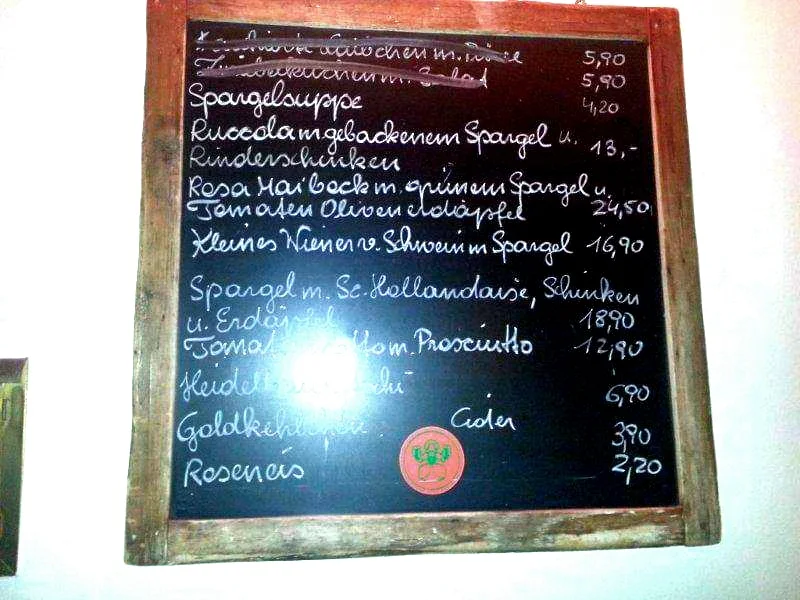 5,90
m. Salat 5,90
Spargelsuppe 4,20
Ruccola m gebackenem Spargel u. 13,-
Rinderschinken
Rosa Maibock m. grünem Spargel u.
Tomaten Oliven erdäpfel 24,50
Kleines Wiener v. Schwein m Spargel 16,90
Spargel m. Sc. Hollandaise, Schinken
u. Erdäpfel 18,90
m. Prosciutto 12,90
6,90
Cider 3,90
Roseneis 2,20